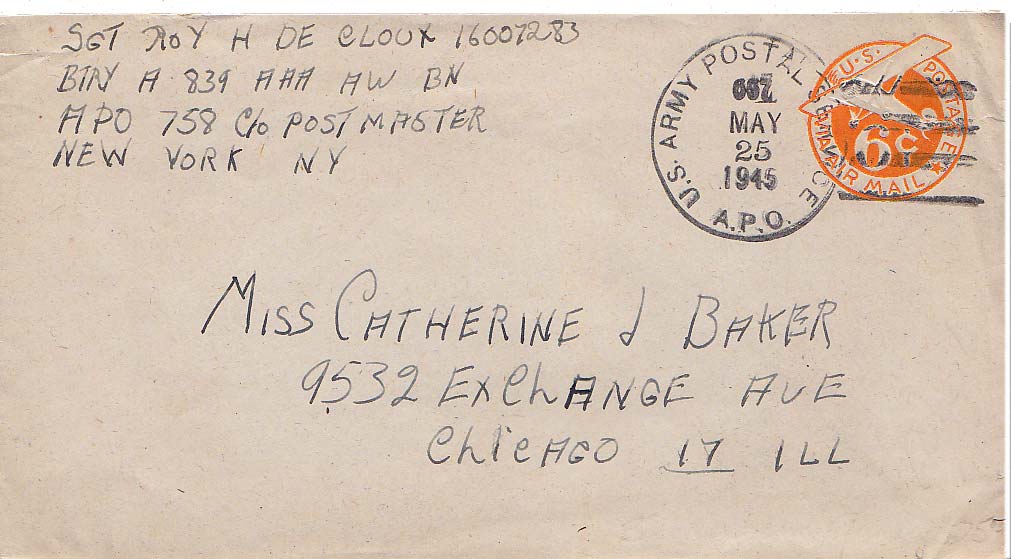 SGT ROY H DE CLOUX 16007283
BTRY A 839 AAA AW BN
APO 758 C/o POSTMASTER
NEW YORK NY
U.S. ARMY POSTAL SERVICE
667
MAY
25
1945
A.P.O.
U.S. POSTAGE
VIA AIR MAIL
6c
MISS CATHERINE J BAKER
9532 EXChANGE AVE
ChiCAGO 17 ILL